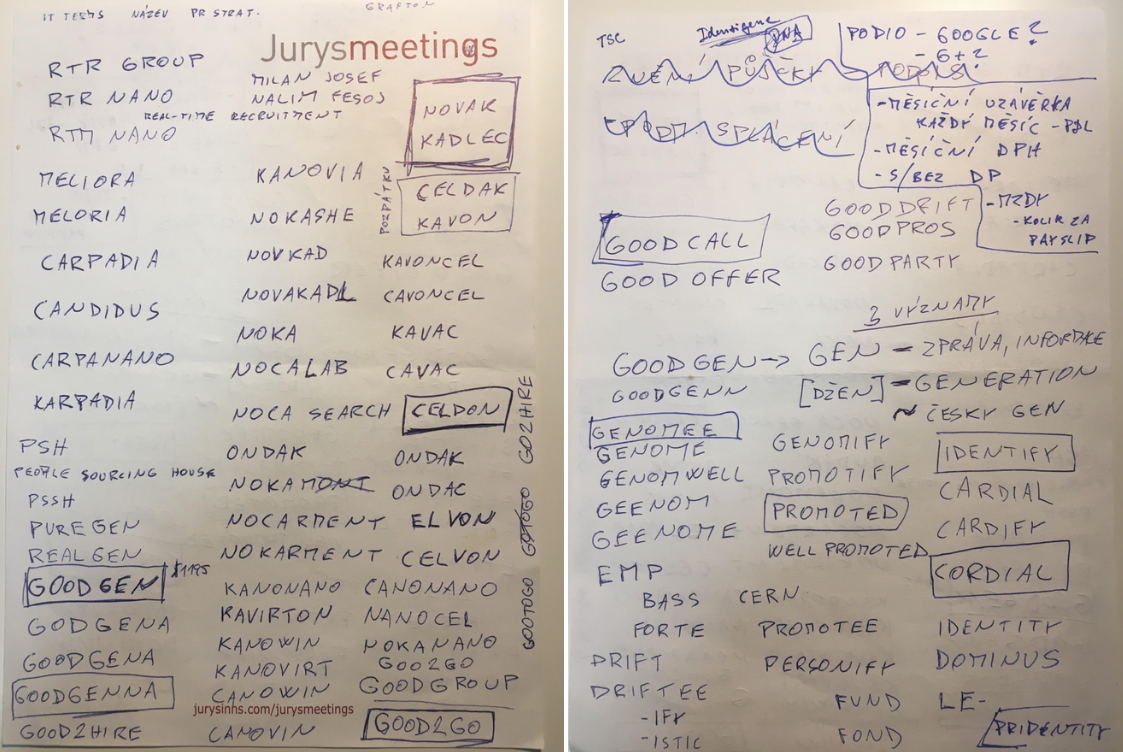 IT TERMS NÁZEV PR STRAT. GRAFTON
Jurysmeetings
RTR GROUP
RTR NANO
REAL-TIME RECRUITMENT
RTM NANO
MELIORA
MELORIA
CARPADIA
CANDIDUS
CARPANANO
KARPADIA
PSH
PEOPLE SOURCING HOUSE
PSSH
PURE GEN
REALGEN
GOODGEN $1195
GODGENA
GOODGENA
GOODGENNA
GOOD2HIRE
MILAN JOSEF
NALIM FESOJ
KANOVIA
NOKASHE
NOVKAD
NOVAKADL
NOKA
NOCALAB
NOCA SEARCH
ONDAK
NOKAMONT
NOCARMENT
NOKARMENT
KANONANO
KAVIRTON
KANOWIN
KANOVIRT
CANOWIN
jurysinns.com/jurysmeetings
CANOVIN
NOVAK
KADLEC
POZPÁTKU
CELDAK
KAVON
KAVONCEL
CAVONCEL
KAVAC
CAVAC
CELDON
ONDAK
ONDAC
ELVON
CELVON
CANONANO
NANOCEL
NOKANANO
GOO2GO
GOODGROUP
GOOD2GO
GO2HIRE
GOTOGO
GOOTOGO
TSC
Identigene
DNA
PODIO - GOOGLE?
- G+?
PŮJČKY
SPLÁCENÍ
-MĚSÍČNÍ UZÁVĚRKA
KAŽDÝ MĚSÍC -
-MĚSÍČNÍ DPH
-S/BEZ DP
-MZDY
-KOLIK ZA
PAYSLIP
GOODDRIFT
GOODPROS
GOODPARTY
GOODCALL
GOOD OFFER
3 VÝZNAMY
GOODGEN → GEN - ZPRÁVA, INFORMACE
GOODGENN
[DŽEN] - GENERATION
~ ČESKY GEN
GENOMEE
GENOME
GENOMWELL
GEENOM
GEENOME
EMP
BASS
FORTE
DRIFT
DRIFTEE
-IFY
-ISTIC
GENOMIFY
PROMOTIFY
PROMOTED
WELL PROMOTED
CERN
PROMOTEE
PERSONIFY
FUND
FOND
IDENTIFY
CARDIAL
CARDIFY
CORDIAL
IDENTITY
DOMINUS
LE-
PRIDENTITY